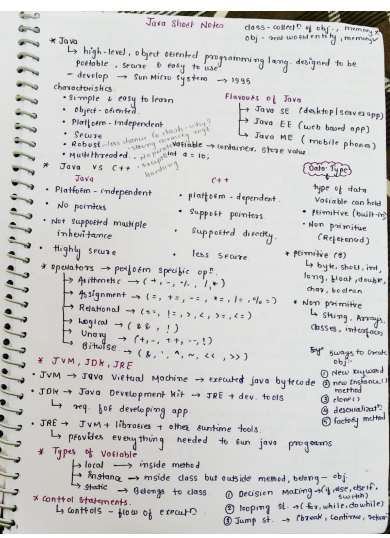 Java Short Notes
class - collectn of obj., memory x
obj - real world entity, memory ✓
* Java
↳ high-level, object oriented programming lang. designed to be
portable, secure & easy to use
- develop → Sun Micro System → 1995
characteristics
• Simple & easy to learn
• Object-oriented
• Platform-independent
• Secure
• Robust - less chance to crash - why?
• Multithreaded. - No
handling
Flavours of Java
→ Java SE (desktop | server app)
→ Java EE (web based app)
→ Java ME (mobile phones)
variable → container, store value
a = 10;
* Java VS C++
Java
C++
• Platform-independent
• platform-dependent.
• No pointers
• Support pointers.
• Not Supported multiple
inheritance
• Supported directly.
• Highly secure
• less secure
Data Type
type of data
variable can hold
* Primitive (built-in)
* Non primitive
(Referenced)
* Primitive (8)
↳ byte, short, int,
long, float, double,
char, boolean
* Non primitive
↳ String, Arrays,
classes, interfaces
* Operators → perform specific opn.
→ Arithmetic → (+, -, %, /, *)
→ Assignment → (=, +=, -=, *=, /=, %=)
→ Relational → (==, !=, >, <, >=, <=)
→ Logical → (&&, !)
→ Unary → (+, -, ++, --, !)
→ Bitwise → (&, ^, ~, <<, >>)
5 ways to create
obj:-
① New keyword
② new Instance()
method
③ clone()
④ deserializatn
⑤ factory method
* JVM, JDK, JRE
• JVM → Java Virtual Machine → executed java bytecode
• JDK → Java Development Kit → JRE + dev. tools
↳ req. for developing app.
• JRE → JVM + libraries + other runtime tools.
↳ provides everything needed to run java programs
* Types of Variable
→ local → inside method
→ Instance → inside class but outside method, belong - obj.
→ static → Belongs to class.
* Control Statements.
↳ controls - flow of executn
① Decision Making → (if, else, elseif, switch)
② looping st. → (for, while, do while)
③ Jump st. → (break, continue, return